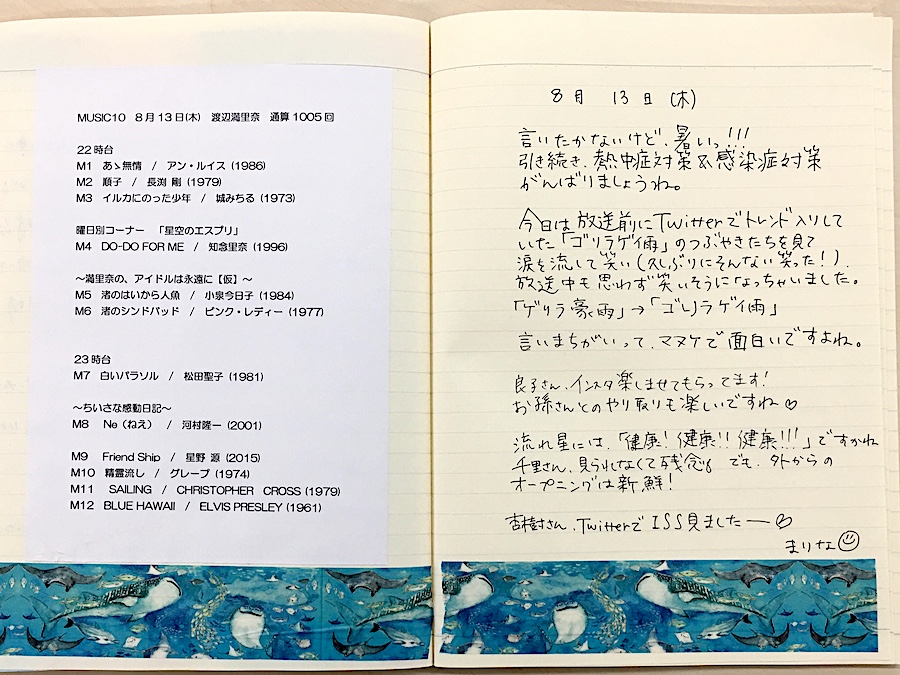 MUSIC10 8月13日(木) 渡辺満里奈 通算1005回
22時台
M1 あゝ無情 / アン・ルイス (1986)
M2 順子 / 長渕 剛 (1979)
M3 イルカにのった少年 / 城みちる (1973)
曜日別コーナー 「星空のエスプリ」
M4 DO-DO FOR ME / 知念里奈 (1996)
～満里奈の、アイドルは永遠に【仮】～
M5 渚のはいから人魚 / 小泉今日子 (1984)
M6 渚のシンドバッド / ピンク・レディー (1977)
23時台
M7 白いパラソル / 松田聖子 (1981)
～ちいさな感動日記～
M8 Ne（ねえ） / 河村隆一 (2001)
M9 Friend Ship / 星野 源 (2015)
M10 精霊流し / グレープ (1974)
M11 SAILING / CHRISTOPHER CROSS (1979)
M12 BLUE HAWAII / ELVIS PRESLEY (1961)
8月 13日 (木)
言いたかないけど、暑いっ!!!
引き続き、熱中症対策&感染症対策
がんばりましょうね。
今日は放送前にTwitterでトレンド入りして
いた「ゴリラゲイ雨」のつぶやきたちを見て
涙を流して笑い(久しぶりにそんない笑った!)、
放送中も思わず笑いそうになっちゃいました。
「ゲリラ豪雨」→「ゴリラゲイ雨」
言いまちがいって、マヌケで面白いですよね。
良子さん、インスタ楽しませてもらってます!
お孫さんとのやり取りも楽しいですね♡
流れ星には、「健康! 健康!! 健康!!!」ですかね
千里さん、見られなくて残念。でも、外からの
オープニングは新鮮!
杏樹さん、TwitterでISS見ましたー♡
まりな☺